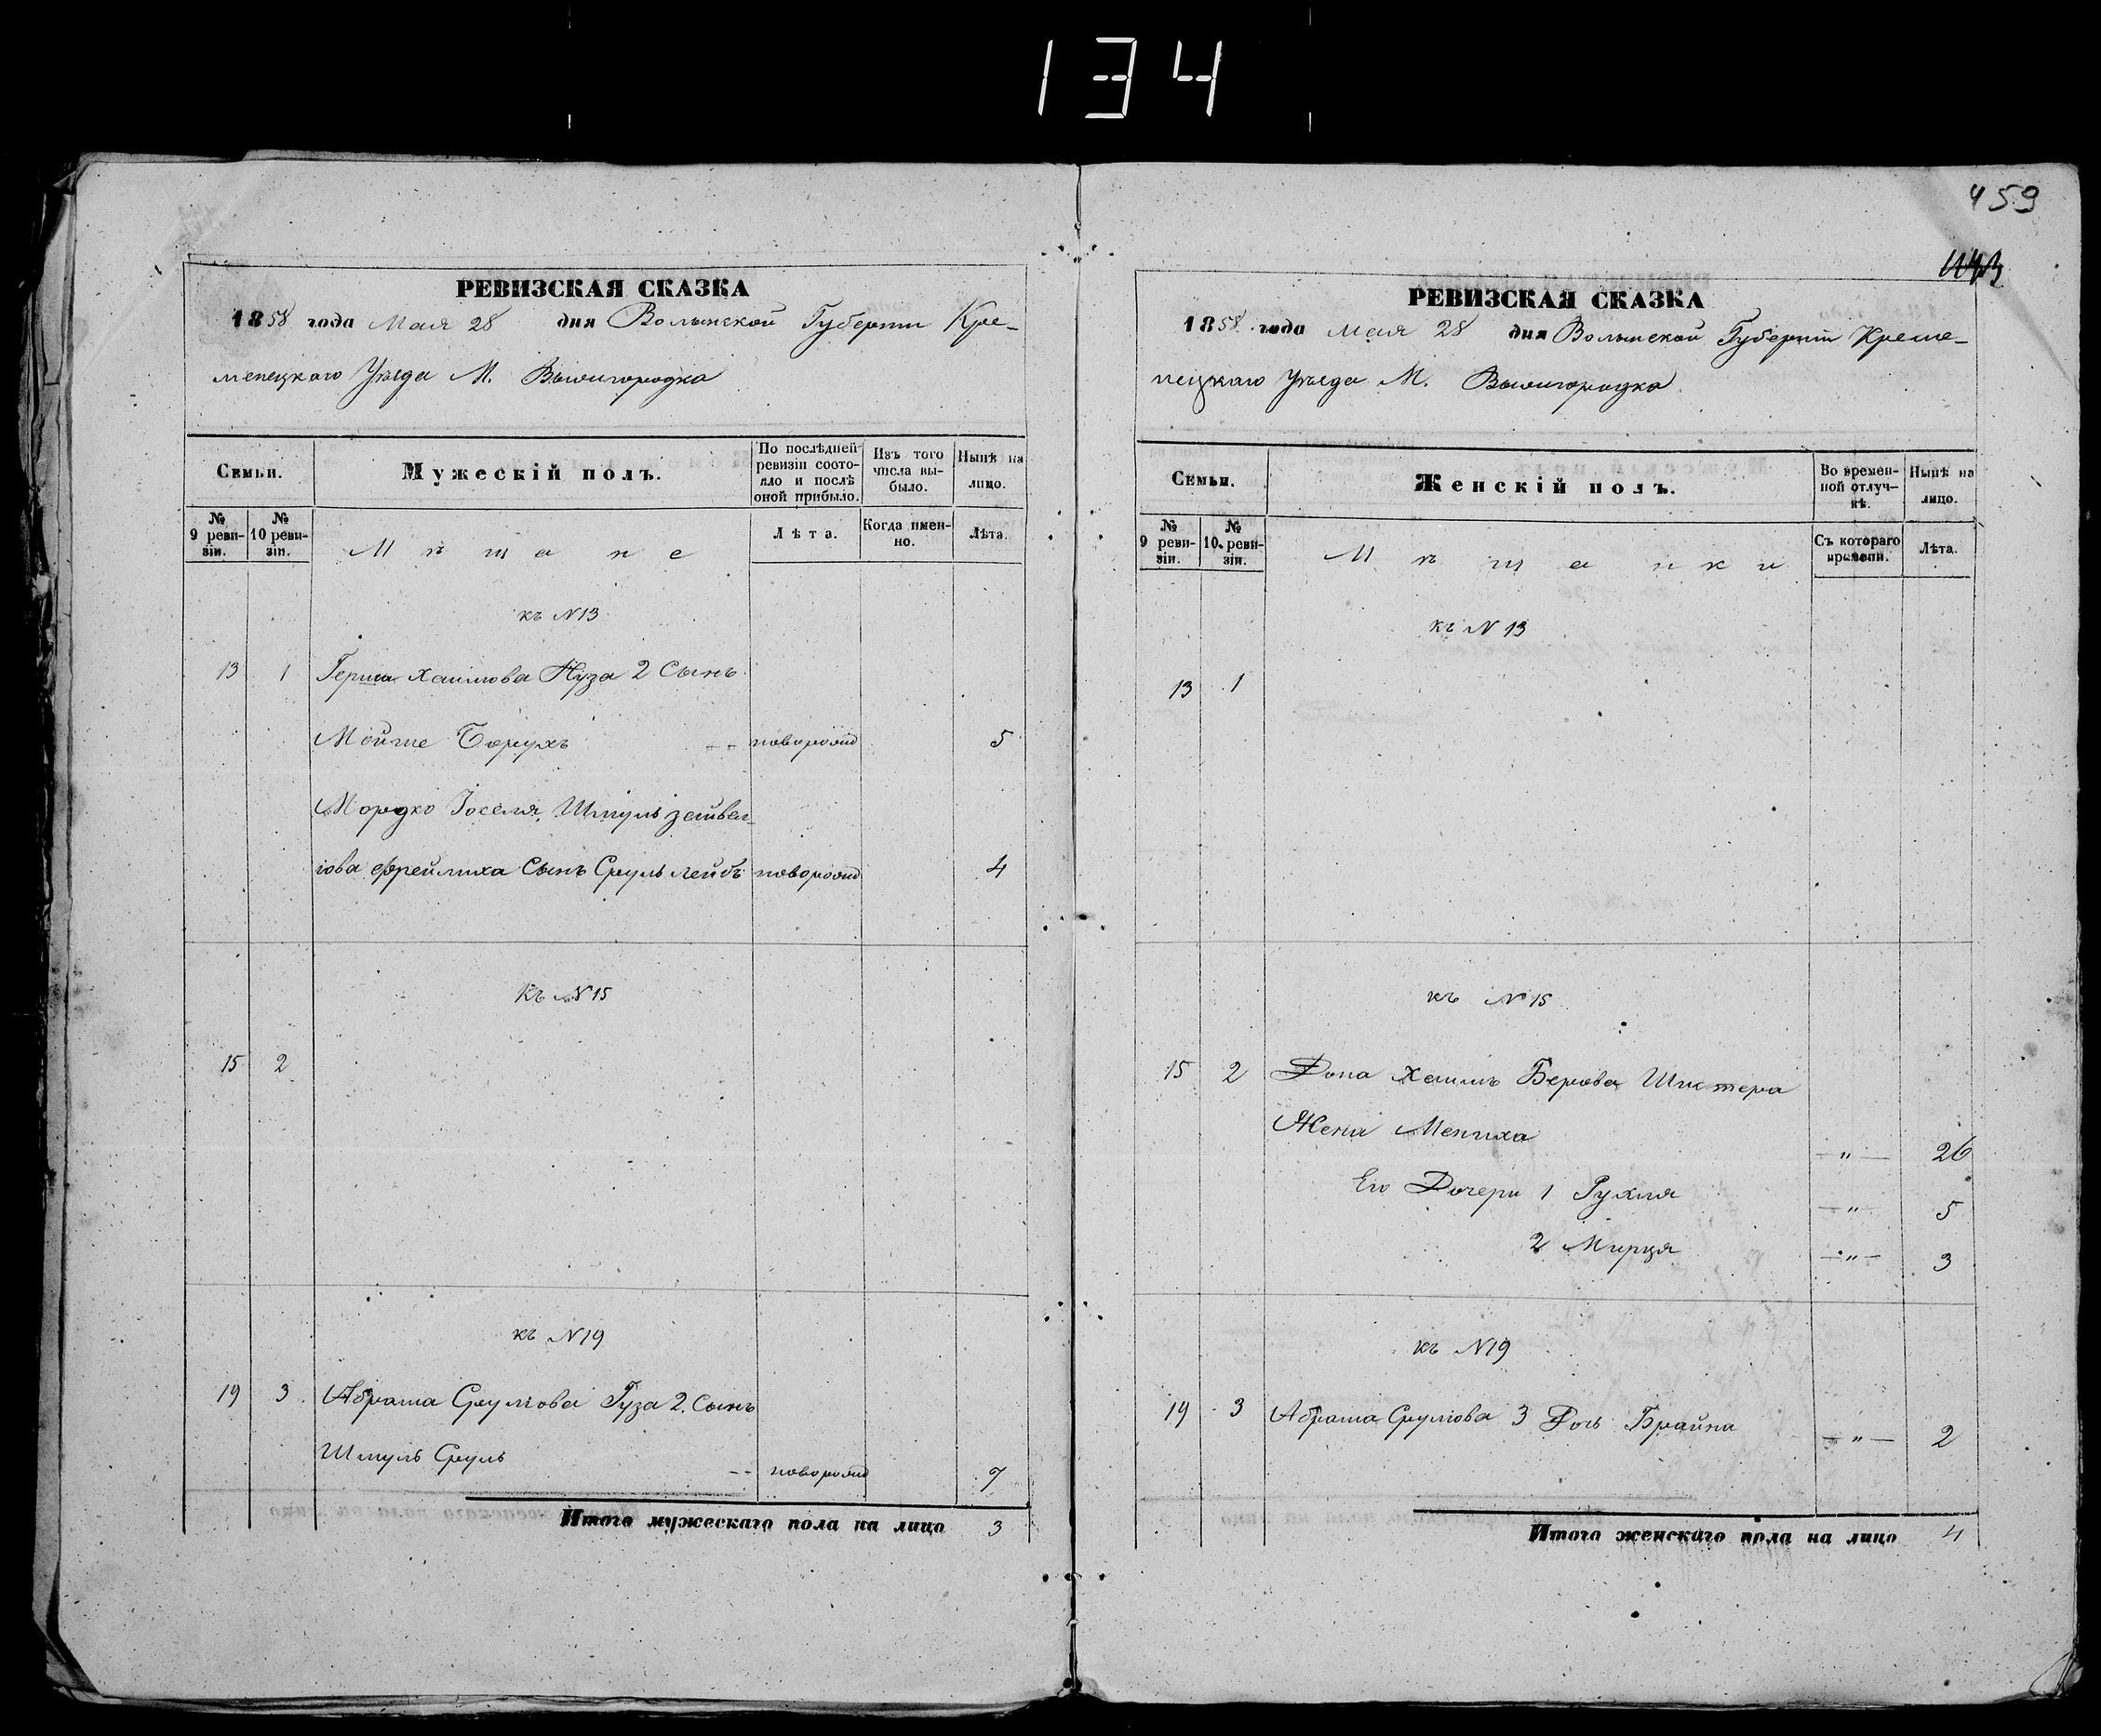 134
459
РЕВИЗСКАЯ СКАЗКА
1858 года Мая 28 дня Волынской Губернiи Кре-
менецкаго Уѣзда М. Вышгородка
Семьи.
Мужескiй полъ.
По послѣдней ревизiи состояло и послѣ оной прибыло.
Изъ того числа выбыло.
Нынѣ на лицо.
№ 9 ревизiи.
№ 10 ревизiи.
Мѣщане
Лѣта.
Когда именно.
Лѣта.
къ №13
13 1 Герша Хаимова Нуза 2 Сынъ
Мойше Борухъ новорожд 5
Мордко Iоселя, Шмуль Зейвел-
iова Фрейлиха Сынъ Сруль Лейбъ новорожд 4
Къ №15
15 2
къ №19
19 3 Абрама Срулiова Гуза 2. Сынъ
Шмуль Сруль новорожд 7
Итого мужескаго пола на лицо 3
РЕВИЗСКАЯ СКАЗКА
1858 года мая 28 дня Волынской Губернiи Креме-
нецкаго Уѣзда М. Вышгородка
Семьи.
Женскiй полъ.
Во временной отлучкѣ.
Нынѣ на лицо.
№ 9 ревизiи.
№ 10. ревизiи.
Мѣщанки
Съ котораго времени.
Лѣта.
къ № 13
13 1
къ № 15
15 2 Хаимъ Берова Шистера
Жена Мениха — „ — 26
Его Дочери 1 Рухля — „ — 5
2 Мирця — „ — 3
къ №19
19 3 Абрама Срулiова 3 Дочь Брайна — „ — 2
Итого женскаго пола на лицо 4